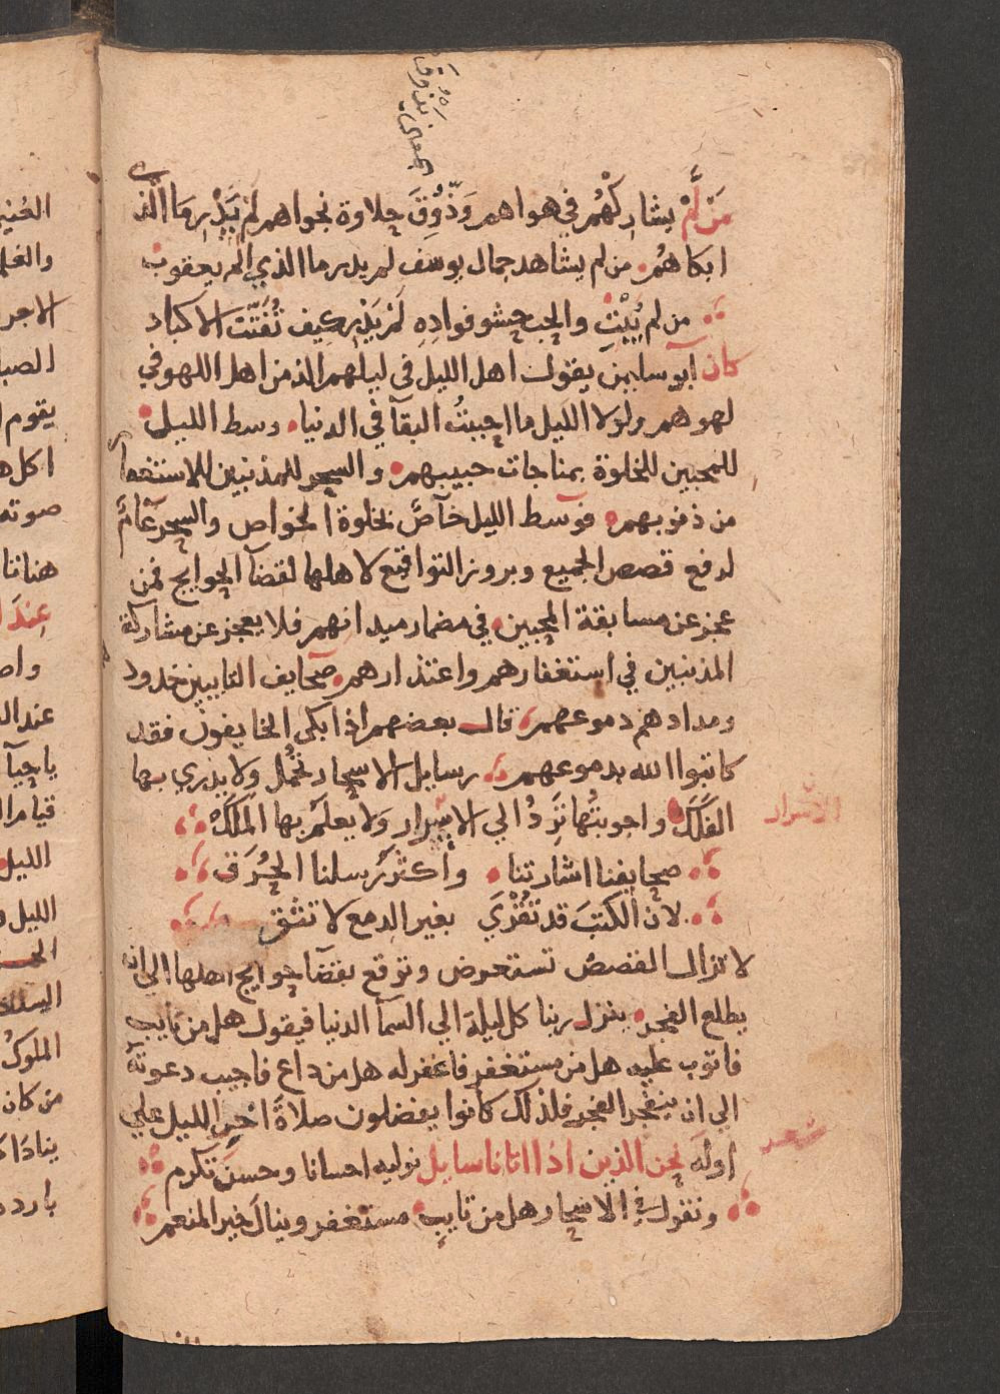 مَنْ لَمْ يشارِكْهُم في هواهم وَذَّوْقَ حلاوة نجواهم لم يَدْرِ مَا الذي
ابكاهُم من لم يشاهد جمال يوسف لم يدر ما الذي الم يعقوب
من لم يُبِيْتِ والحب حشو فوادِهِ لَمْ يَدْرِ كيف تُفَتّت الاكباد
كان ابو سليمن يقول اهل الليل في ليلهم الذ من اهل اللهو في
لهوهم ولولا الليل ما احببتُ البقآ في الدنيا وسط الليل
للمحبين للخلوة بمناجات حبيبهم والسحر للمذنبين للاستغفار
من ذنوبهم فوسط الليل خآصٌ لخلوة الخواص والسحر عَآمٌ
لرفع قصص الجميع وبروز التواقيع لاهلها لقضآ الحوايج فمن
عجز عن مسابقة المحبين في مضمار ميدانهم فلا يعجز عن مشاركة
المذنبين في استغفارهم واعتذارهم صحايف التايبين خدود
ومدادهم دموعهم قال بعضهم اذا بكى الخايفون فقد
كاتبوا الله بدموعهم رسايل الاسحار تُحْمل ولا يدري بها
الفَلَك واجوبتُها تَرِدُ الي الاسْرار وَلا يعلَمُ بها المَلَكْ
الاسرار
صحايفنا اشارتنا واكثرُ رسلنا الحُرَق
لان الكتبَ قد تُقْرَي بغير الدمع لا تثق
لا تزال القصصُ تستعرض وتوقع بقضآ حوايج اهلها الي ان
يطلع الفجر ينزل ربنا كل ليلة الي السمآ الدنيا فيقول هل من تايب
فاتوب عليه هل من مستغفر فاغفر له هل من داع فاجيب دعوته
الي ان ينفجر الفجر فلذلك كانوا يفضلون صلاةَ اخر الليل علي
اوله نحن الذين اذا اتانا سايل نوليه احسانا وحسن تكرم
شعر
ونقول في الاسحار هل من تايب مستغفر وينال خير المنعم